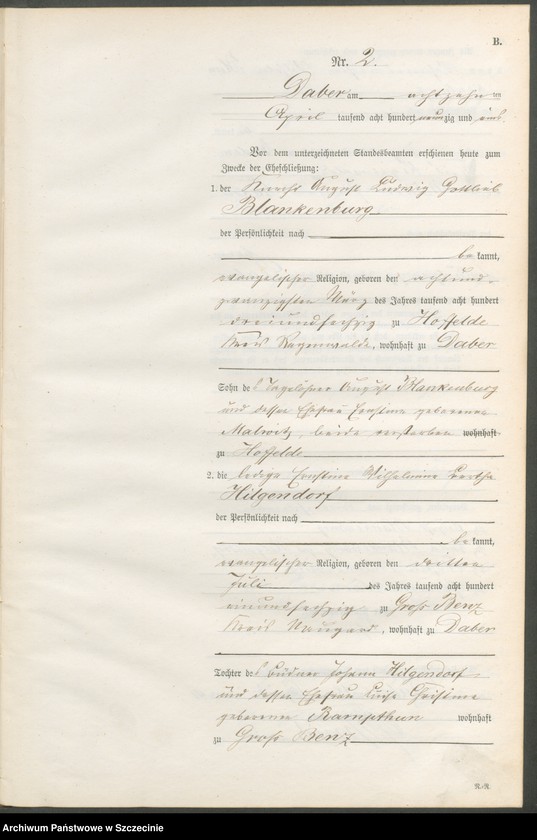 B.
Nr. 2.
Daber am achtzehn ten
April tausend acht hundert neunzig und eins
Vor dem unterzeichneten Standesbeamten erschienen heute zum
Zwecke der Eheschließung:
1. der Knecht August Ludwig Gottlieb
Blankenburg
der Persönlichkeit nach
be kannt,
evangelischer Religion, geboren den achtund-
zwanzigsten März des Jahres tausend acht hundert
dreiundsechzig zu Hoffelde
Kreis Regenwalde, wohnhaft zu Daber
Sohn des Tagelöhner August Blankenburg
und dessen Ehefrau Ernstine geborenen
beide verstorben wohnhaft
zu Hoffelde
2. die ledige Ernstine Wilhelmine Bertha
Hilgendorf
der Persönlichkeit nach
be kannt,
evangelischer Religion, geboren den dritten
Juli des Jahres tausend acht hundert
einundsechzig zu Groß Benz
Kreis Naugard, wohnhaft zu Daber
Tochter des Büdner Johann Hilgendorf
und dessen Ehefrau Luise
geborenen Rampthun wohnhaft
zu Groß Benz
Archiwum Państwowe w Szczecinie